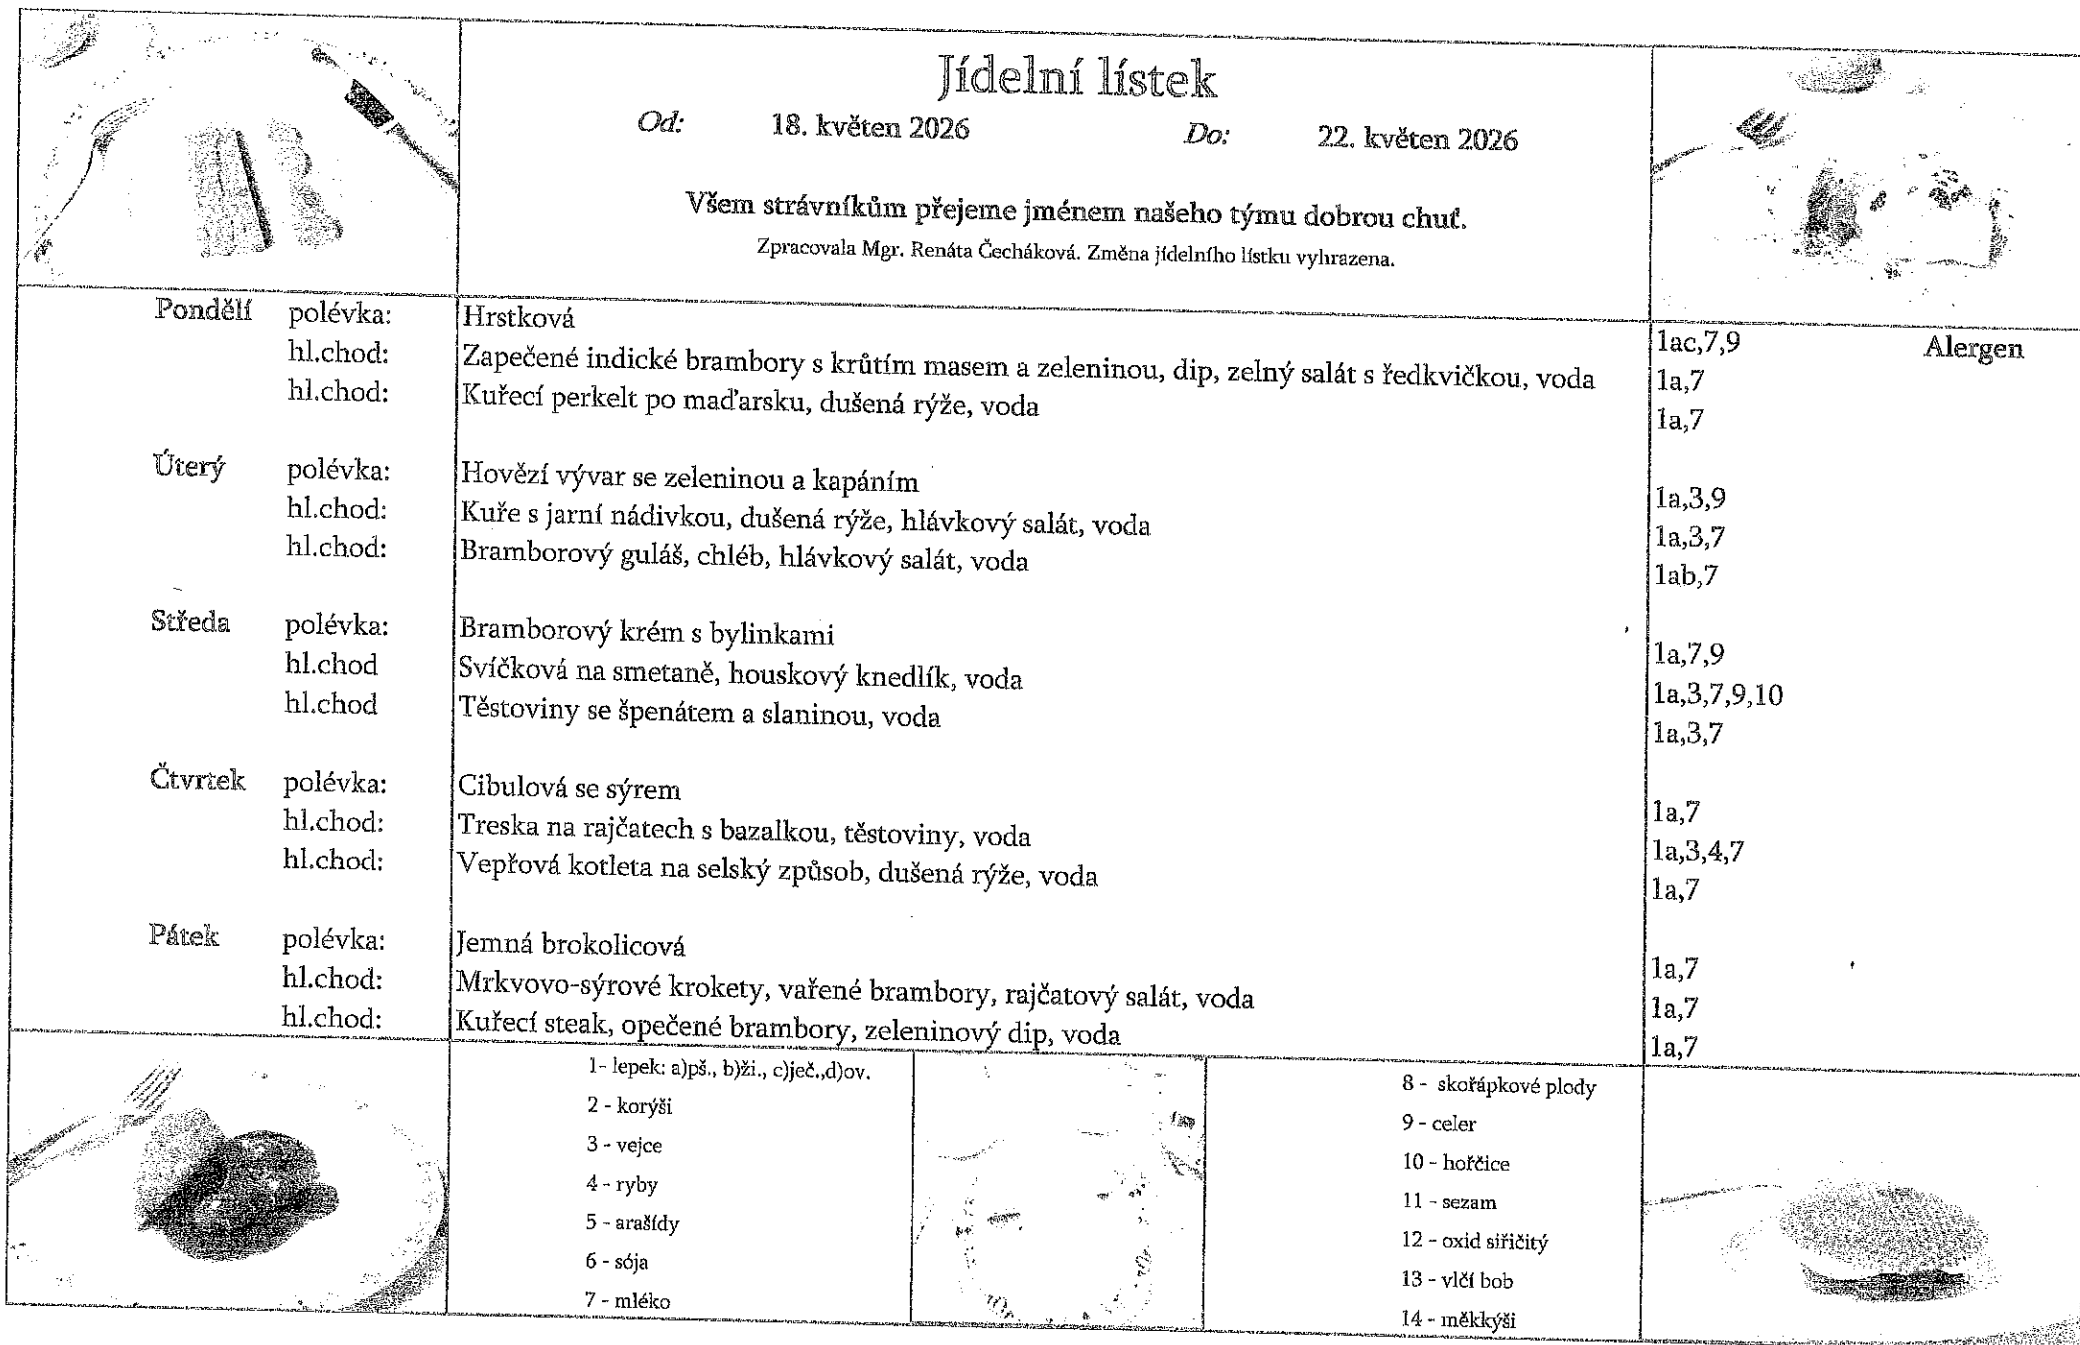 Jídelní lístek
Od: 18. květen 2026 Do: 22. květen 2026
Všem strávníkům přejeme jménem našeho týmu dobrou chuť.
Zpracovala Mgr. Renáta Čecháková. Změna jídelního lístku vyhrazena.
Alergen
Pondělí polévka: Hrstková 1ac,7,9
hl.chod: Zapečené indické brambory s krůtím masem a zeleninou, dip, zelný salát s ředkvičkou, voda 1a,7
hl.chod: Kuřecí perkelt po maďarsku, dušená rýže, voda 1a,7
Úterý polévka: Hovězí vývar se zeleninou a kapáním 1a,3,9
hl.chod: Kuře s jarní nádivkou, dušená rýže, hlávkový salát, voda 1a,3,7
hl.chod: Bramborový guláš, chléb, hlávkový salát, voda 1ab,7
Středa polévka: Bramborový krém s bylinkami 1a,7,9
hl.chod Svíčková na smetaně, houskový knedlík, voda 1a,3,7,9,10
hl.chod Těstoviny se špenátem a slaninou, voda 1a,3,7
Čtvrtek polévka: Cibulová se sýrem 1a,7
hl.chod: Treska na rajčatech s bazalkou, těstoviny, voda 1a,3,4,7
hl.chod: Vepřová kotleta na selský způsob, dušená rýže, voda 1a,7
Pátek polévka: Jemná brokolicová 1a,7
hl.chod: Mrkvovo-sýrové krokety, vařené brambory, rajčatový salát, voda 1a,7
hl.chod: Kuřecí steak, opečené brambory, zeleninový dip, voda 1a,7
1- lepek: a)pš., b)ži., c)ječ.,d)ov.
2 - korýši
3 - vejce
4 - ryby
5 - arašídy
6 - sója
7 - mléko
8 - skořápkové plody
9 - celer
10 - hořčice
11 - sezam
12 - oxid siřičitý
13 - vlčí bob
14 - měkkýši